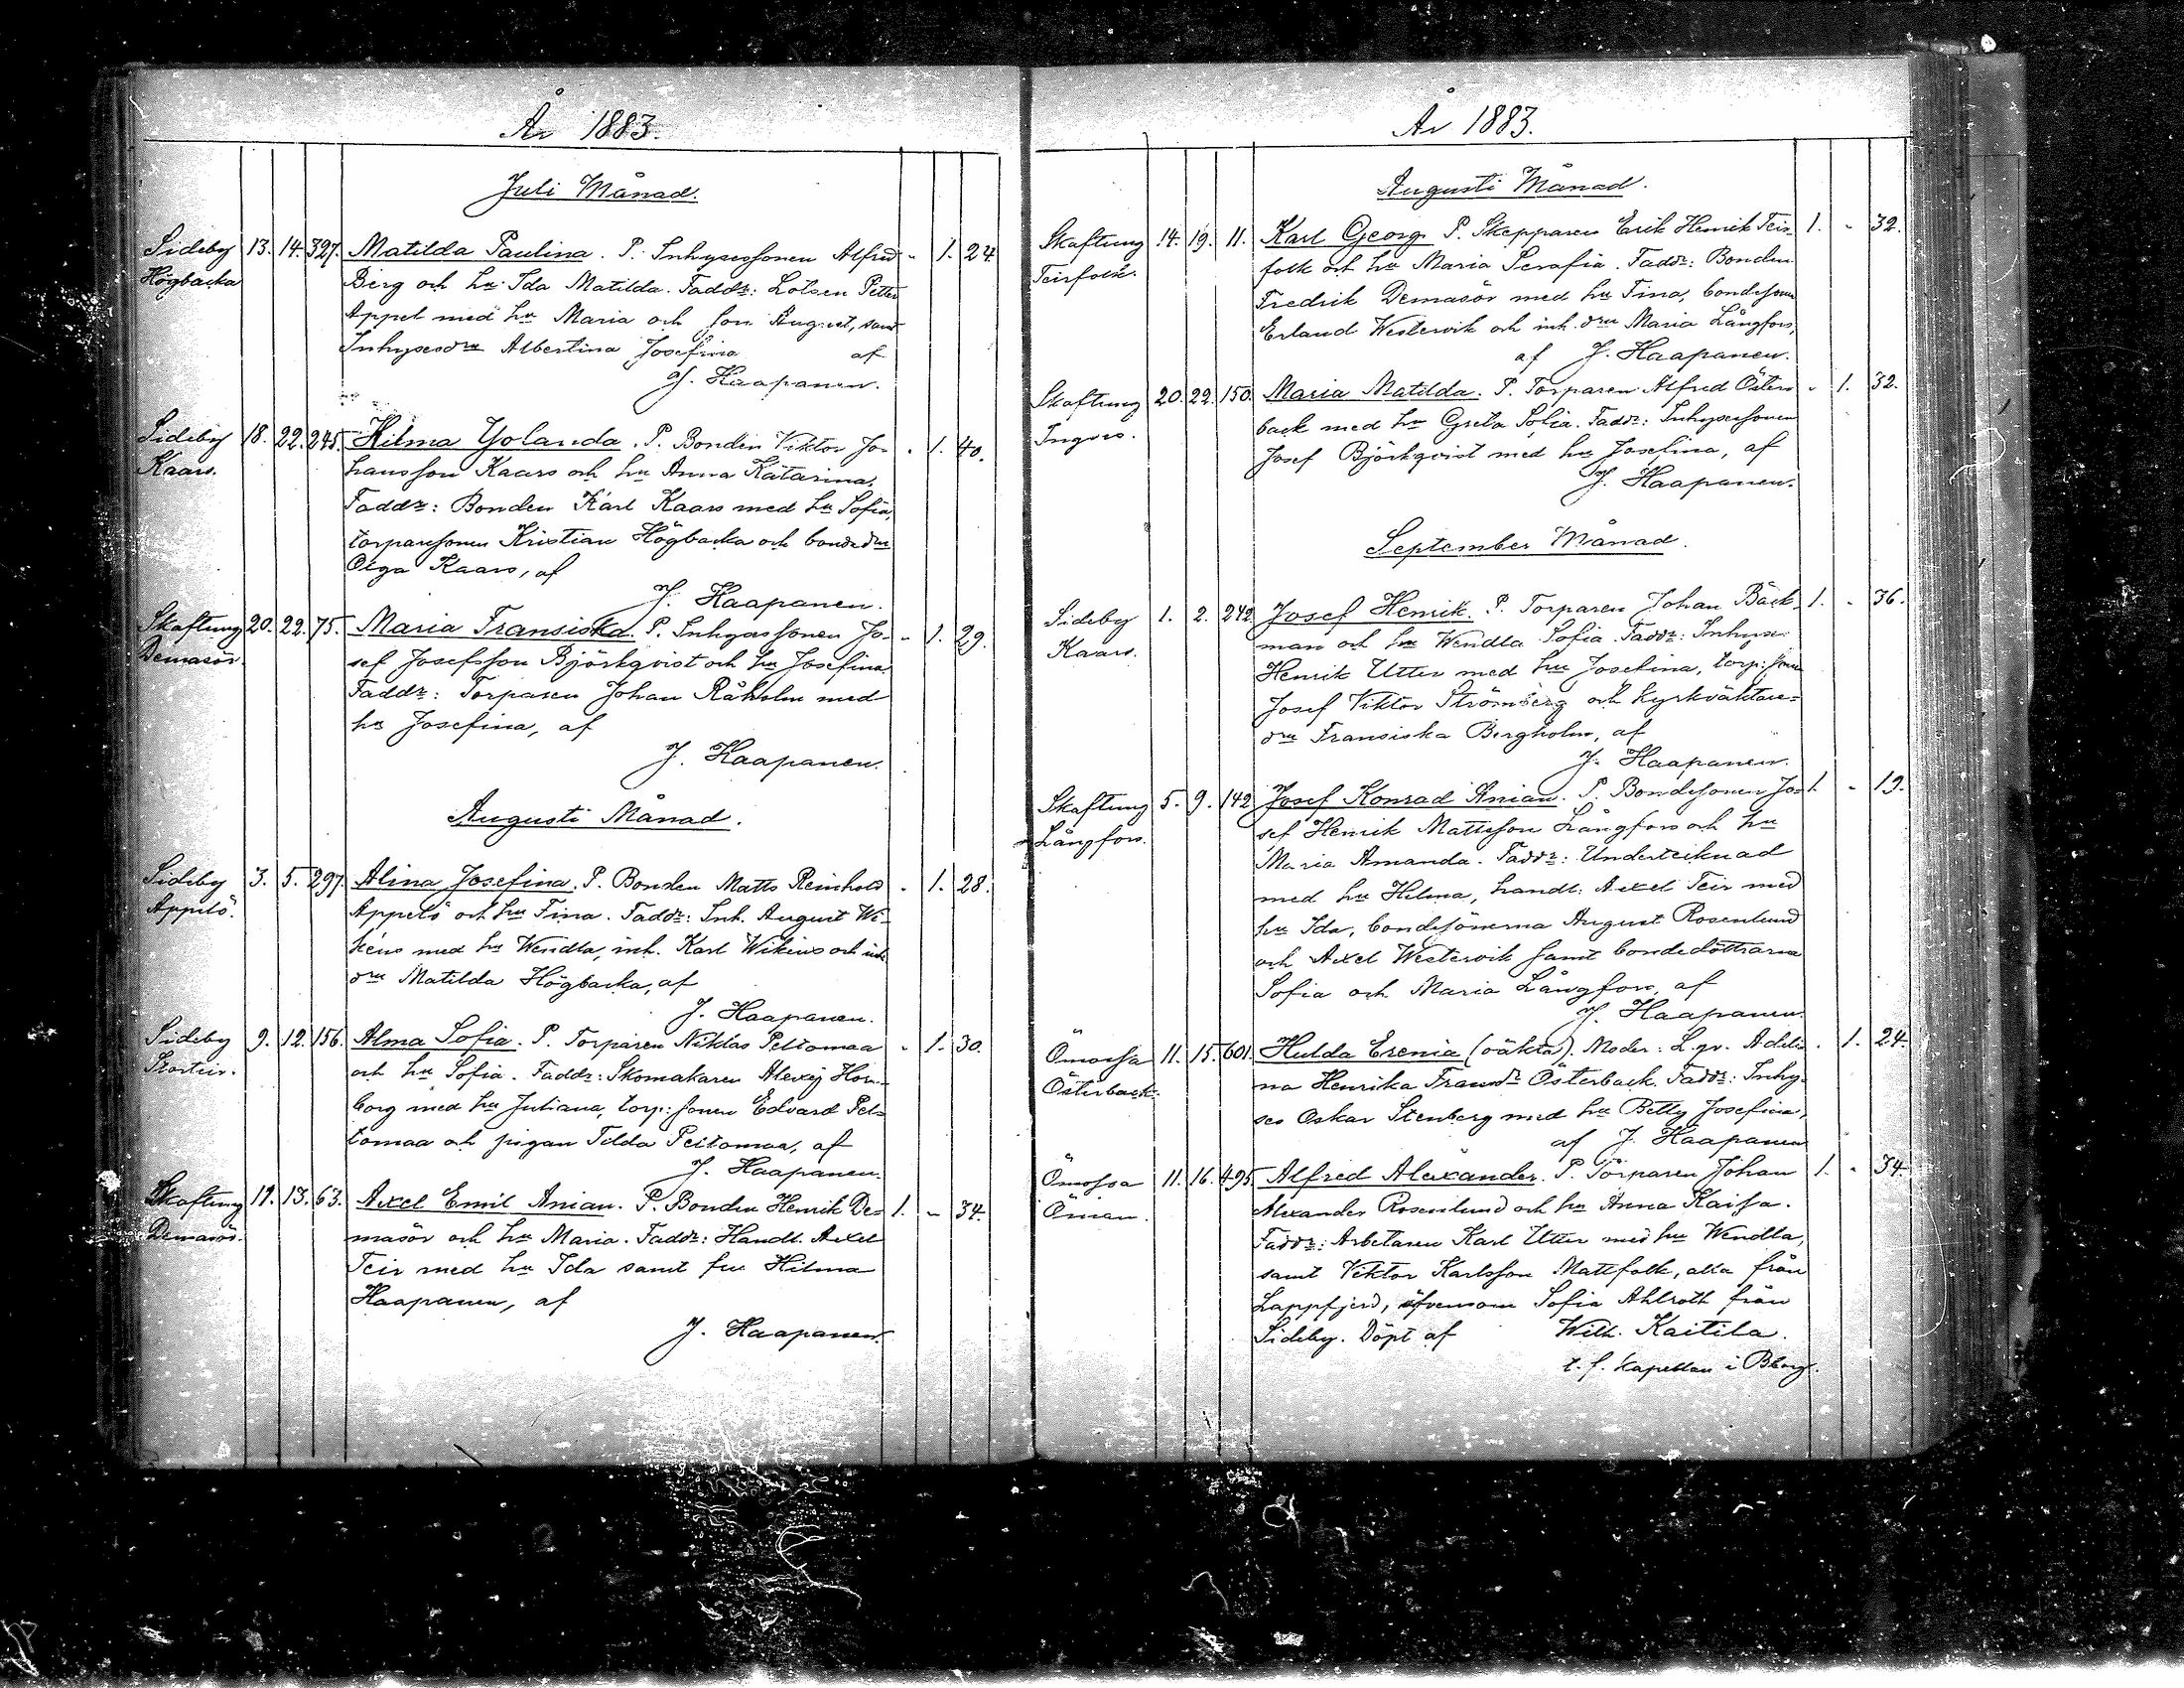 År 1883.
Juli Månad.
Sideby 13. 14. 327. Matilda Paulina. P. Inhysessonen Alfred " 1. 24.
Högbacka Berg och hu Ida Matilda. Faddr: Lotsen Petter
Appel med hu Maria och son August, samt
Inhysesdrn Albertina Josefina af
J. Haapanen.
Sideby 18. 22. 245. Hilma Yolanda. P. Bonden Viktor Jo- " 1. 40.
Kaars. hansson Kaars och hu Anna Katarina.
Faddr: Bonden Karl Kaars med hu Sofia,
torparesonen Kristian Högbacka och bondedrn
Olga Kaars, af
J. Haapanen.
Skaftung 20. 22. 75. Maria Fransiska. P. Inhysessonen Jo- " 1. 29.
Demasör. sef Josefsson Björkqvist och hu Josefina.
Faddr: Torparen Johan Råholm med
hu Josefina, af
J. Haapanen.
Augusti Månad.
Sideby 3. 5. 297. Alina Josefina. P. Bonden Matts Reinhold " 1. 28.
Appelö. Appelö och hu Fina. Faddr: Inh. August Wi-
kéns med hu Wendla, inh. Karl Wikéns och inh.
drn Matilda Högbacka, af
J. Haapanen.
Sideby 9. 12. 156. Alma Sofia. P. Torparen Niklas Peltomaa " 1. 30.
Storteir. och hu Sofia. Faddr: Skomakaren Alexej Horn-
borg med hu Juliana, torp: sonen Edvard Pel-
tomaa och pigan Tilda Peltomaa, af
J. Haapanen.
Skaftung 11. 13. 63. Axel Emil Anian. P. Bonden Henrik De- 1. " 34.
Demasör. masör och hu Maria. Faddr: Handl. Axel
Teir med hu Ida samt fru Hilma
Haapanen, af
J. Haapanen.
År 1883.
Augusti Månad.
Skaftung 14. 19. 11. Karl Georg P. Skepparen Erik Henrik Teir- 1. " 32.
Teirfolk. folk och hu Maria Serafia. Faddr: Bonden
Fredrik Demasör med hu Fina, bondesonen
Erland Westervik och inh. drn Maria Långfors,
af J. Haapanen.
Skaftung 20. 22. 150. Maria Matilda. P. Torparen Alfred Öster- " 1. 32.
Ingves. back med hu Greta Sofia. Faddr: Inhysessonen
Josef Björkqvist med hu Josefina, af
J. Haapanen.
September Månad.
Sideby 1. 2. 242. Josef Henrik. P. Torparen Johan Bäck- 1. " 36.
Kaars. man och hu Wendla Sofia. Faddr: Inhyses
Henrik Utter med hu Josefina, torp: sonen
Josef Viktor Strömberg och kyrkväktare-
drn Fransiska Bergholm, af
J. Haapanen.
Skaftung 5. 9. 142. Josef Konrad Anian. P. Bondesonen Jo- 1. " 19.
Långfors. sef Henrik Mattsson Långfors och hu
Maria Amanda. Faddr: Undertecknad
med hu Hilma, handl: Axel Teir med
hu Ida, bondesönerna August Rosenlund
och Axel Westervik samt bondedöttrarna
Sofia och Maria Långfors, af
J. Haapanen.
Ömossa 11. 15. 601. Hulda Erenia (oäkta). Moder: L. qv. Adeli- " 1. 24.
Österback. na Henrika Fransdr Österback. Faddr: Inhy-
ses Oskar Stenberg med hu Betty Josefina,
af J. Haapanen
Ömossa 11. 16. 495. Alfred Alexander. P. Torparen Johan 1. " 34.
Öman. Alexander Rosenlund och hu Anna Kaisa.
Faddr: Arbetaren Karl Utter med hu Wendla,
samt Viktor Karlsson Mattfolk, alla från
Lappfjerd, äfvensom Sofia Ahlroth från
Sideby. Döpt af Wilh. Kaitila.
t. f. kapellan i Bborg.